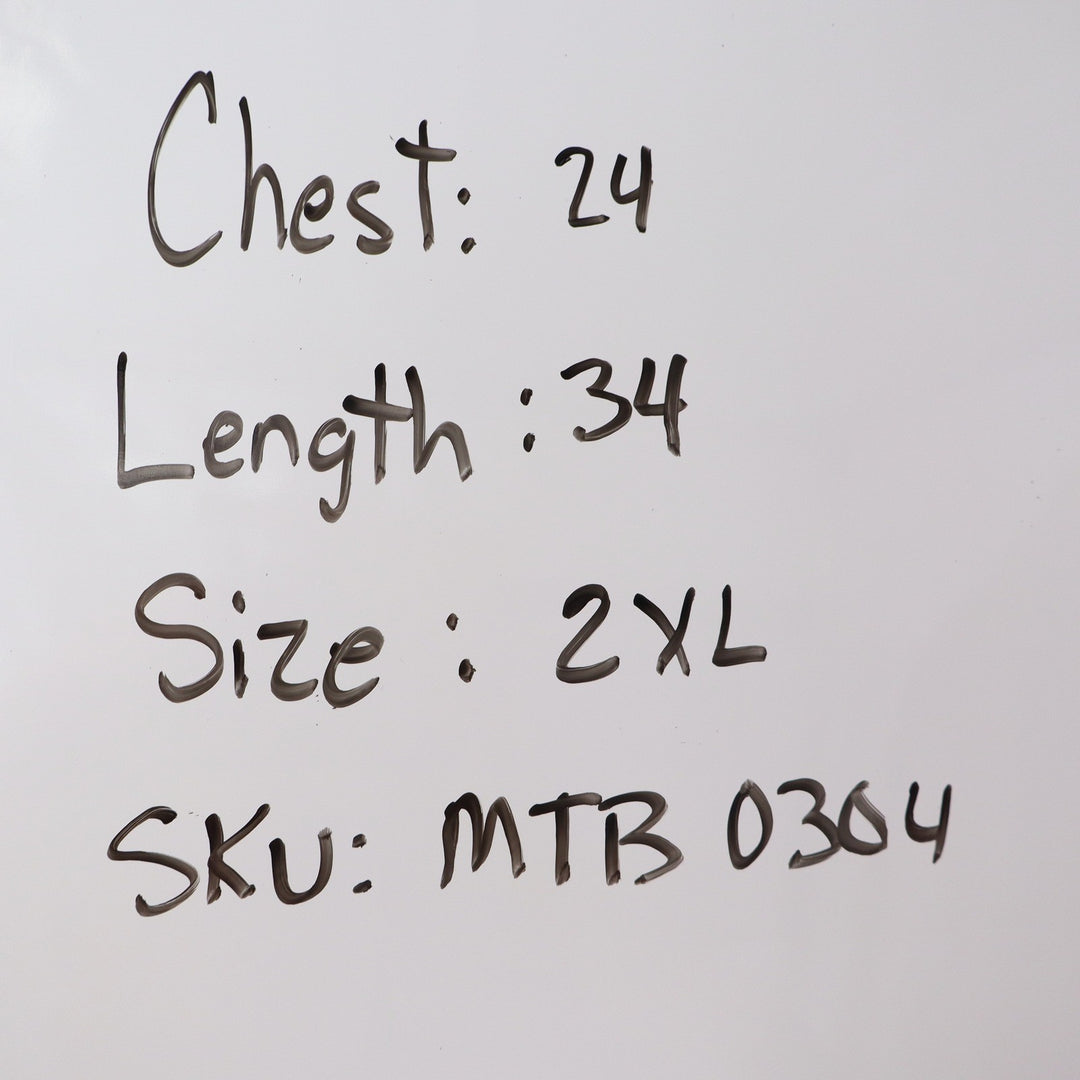 Chest: 24
Length: 34
Size: 2XL
SKU: MTB 0304